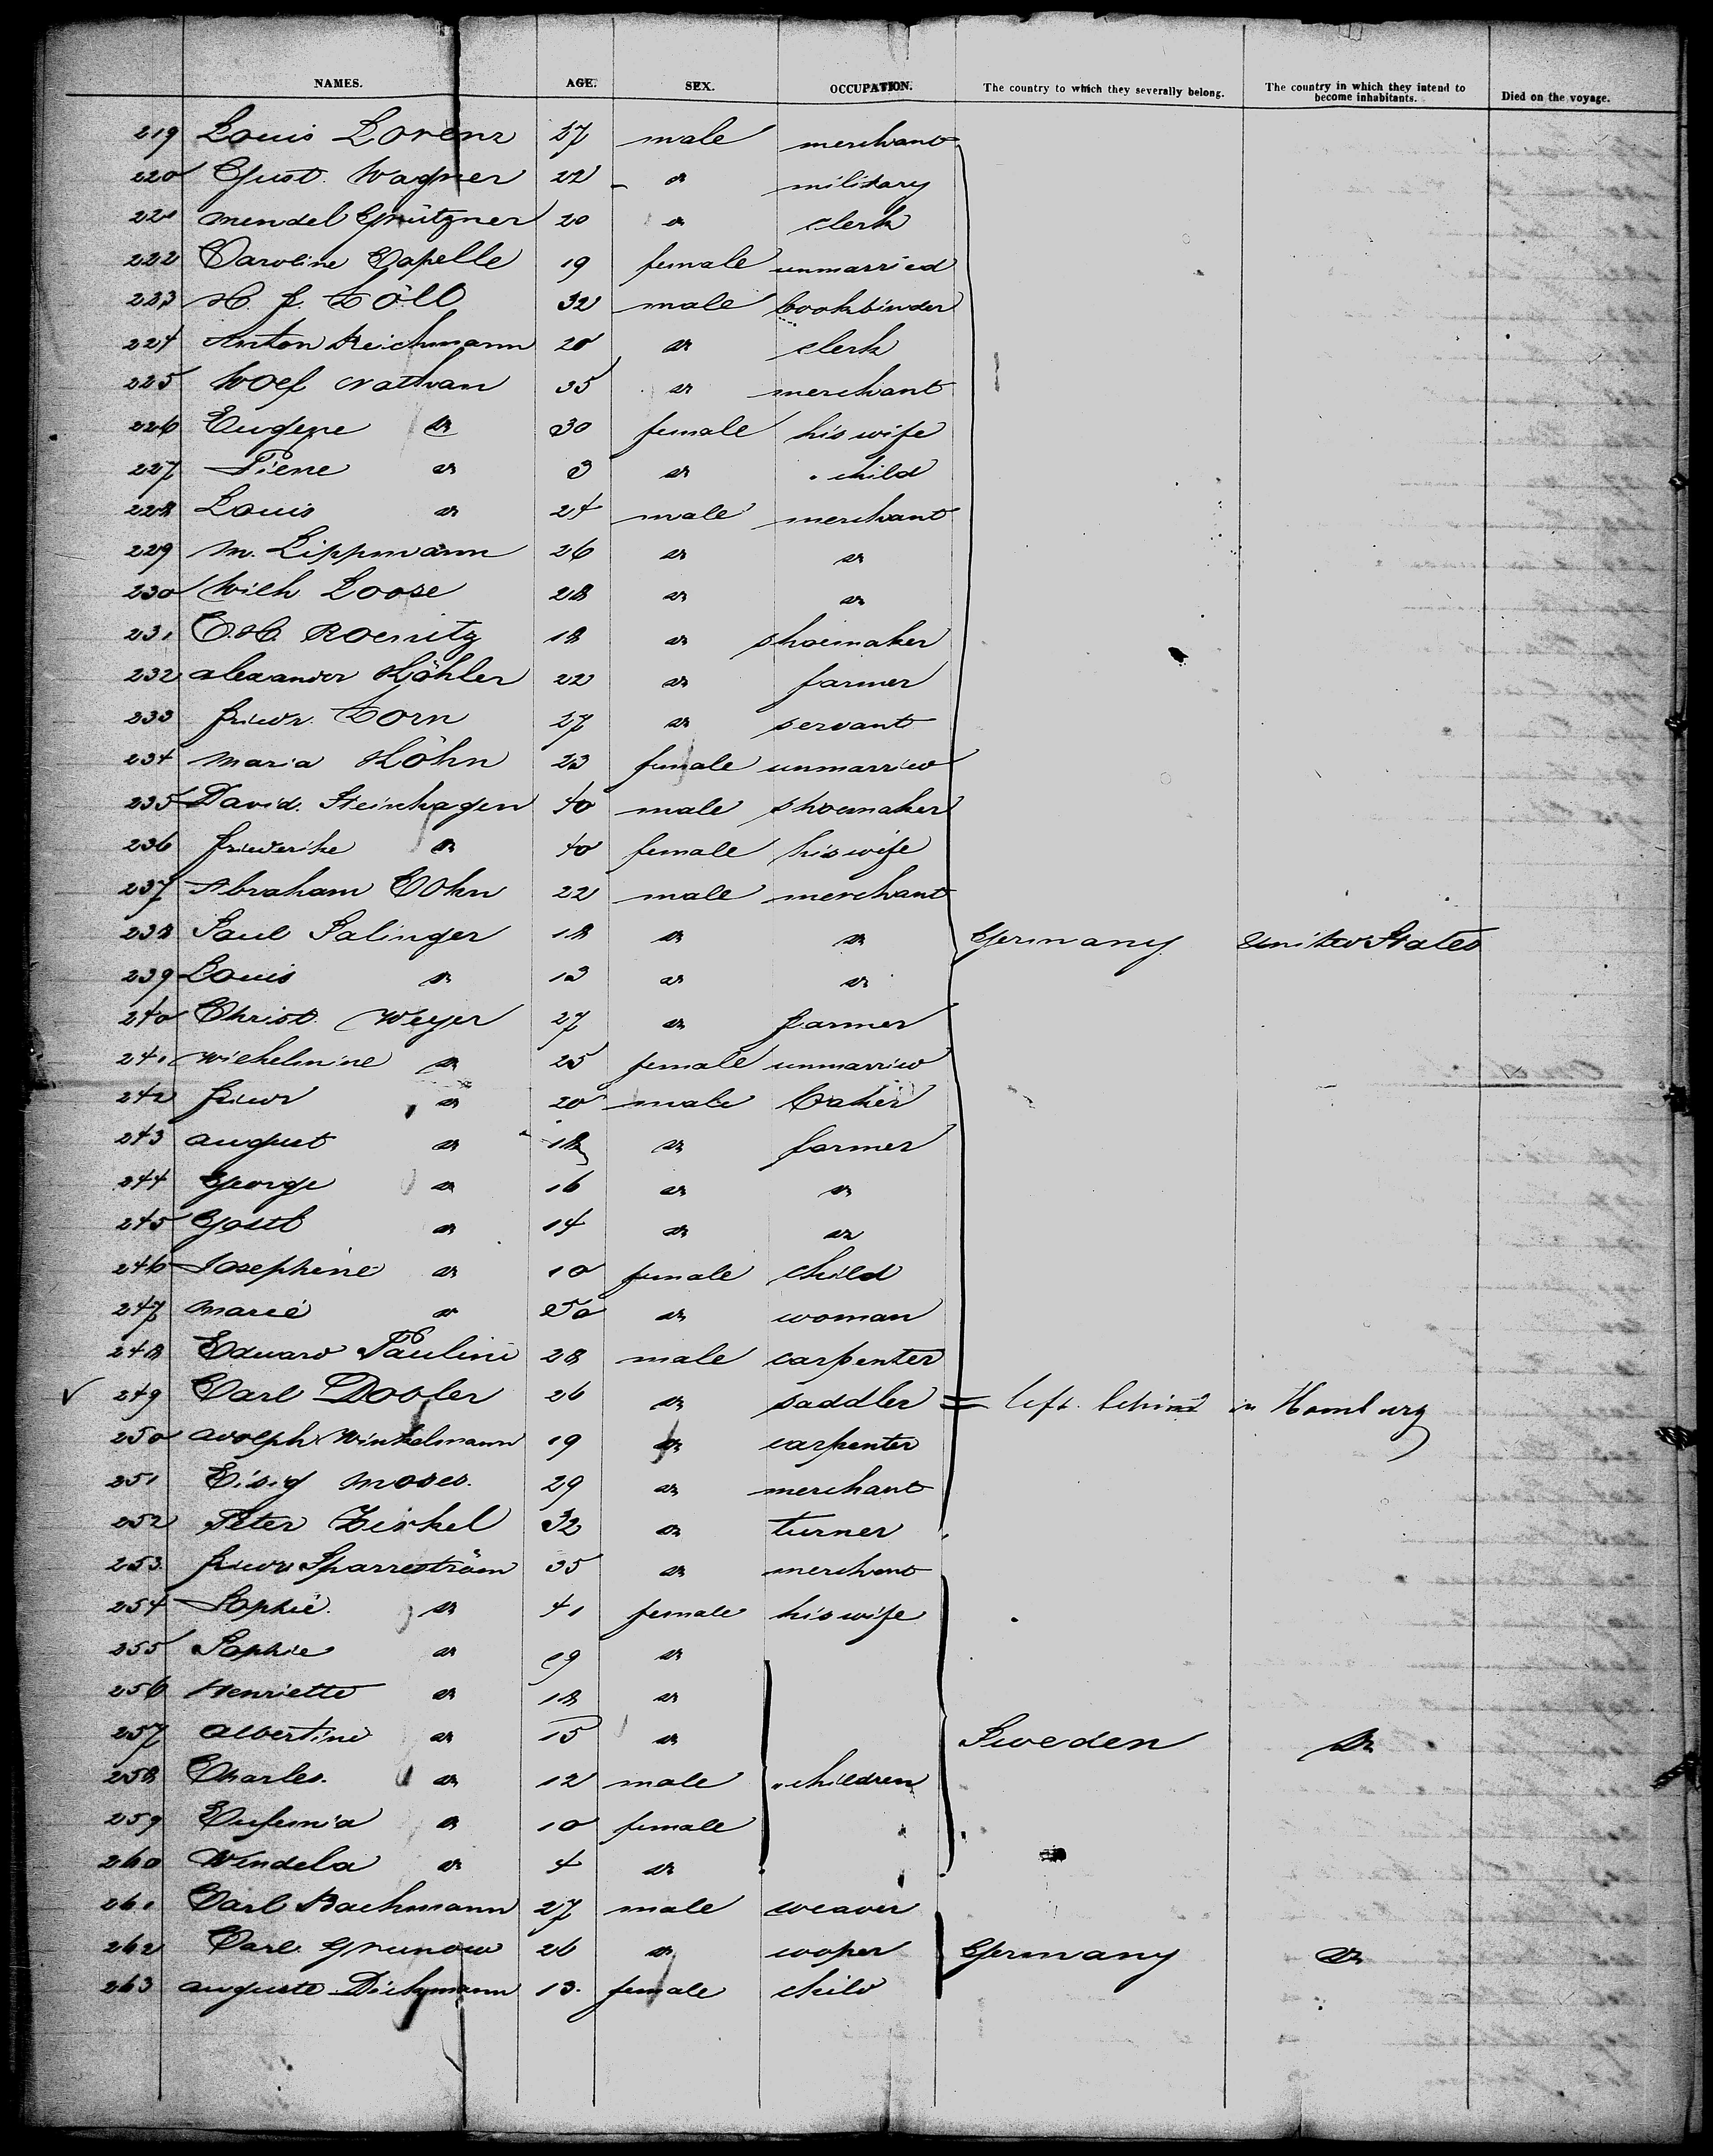 NAMES. AGE. SEX. OCCUPATION. The country to which they severally belong. The country in which they intend to become inhabitants. Died on the voyage.
219 Louis Lorenz 27 male merchant
220 Gust. Wagner 22 " military
221 Mendel Grützner 20 " clerk
222 Caroline Capelle 19 female unmarried
223 H. J. Töll 32 male bookbinder
224 Anton Reichmann 20 " clerk
225 Wolf Nathan 35 " merchant
226 Eugene " 30 female his wife
227 Piene " 3 " " child
228 Louis " 24 male merchant
229 M. Lippmann 26 " "
230 Wilh Loose 28 " "
231 E. H. Roenitz 18 " shoemaker
232 Alexander Köhler 22 " farmer
233 Friedr. Dorn 27 " servant
234 Maria Höhn 23 female unmarried
235 David. Steinhagen 40 male shoemaker
236 Friederike " 40 female his wife
237 Abraham Cohn 22 male merchant
238 Paul Salinger 18 " " Germany United States
239 Louis " 13 " "
240 Christ. Weyer 27 " farmer
241 Wilhelmine " 25 female unmarried
242 Friedr " 20 male baker
243 August " 18 " farmer
244 George " 16 " "
245 Gottl " 14 " "
246 Josephine " 10 female child
247 Marie " 50 " woman
248 Eduard Pauline 28 male carpenter
✓ 249 Carl Dobler 26 " saddler = left behind in Hamburg
250 Adolph Winkelmann 19 " carpenter
251 Eisig Moses. 29 " merchant
252 Peter Zirkel 32 " turner
253. Friedr. Sparreström 35 " merchant
254 Sophie. " 41 female his wife
255 Sophie " 19 "
256 Henriette " 18 "
257 Albertine " 15 " Sweden "
258 Charles. " 12 male " children
259 Eufemia " 10 female
260 Wendela " 4 "
261 Carl Bachmann 27 male weaver
262 Carl Grunow 26 " cooper Germany "
263 Auguste Dichmann 13. female child